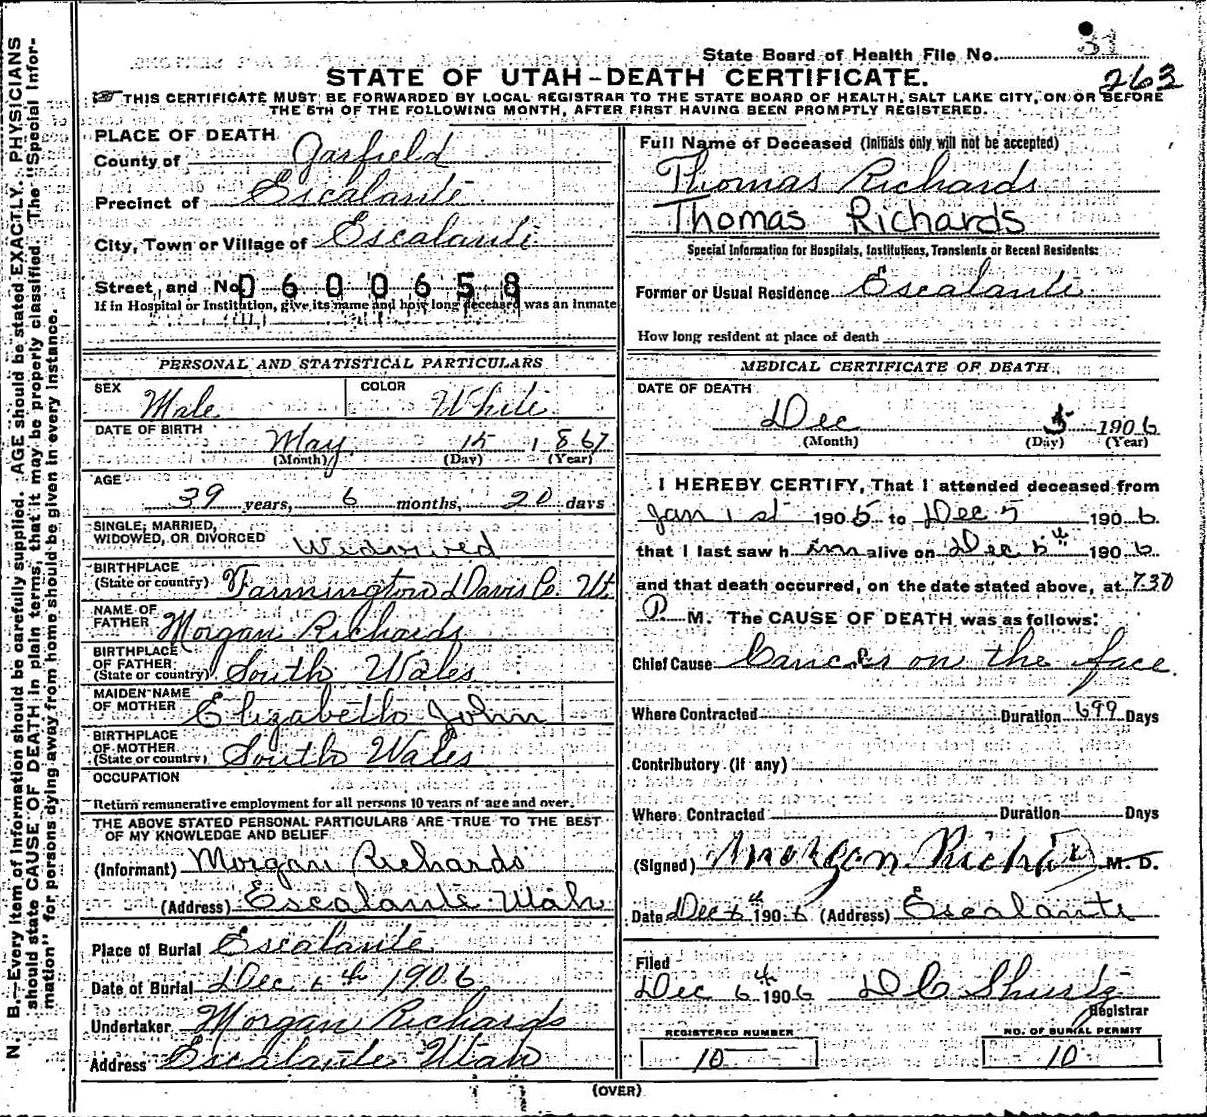 State Board of Health File No. 31
263
STATE OF UTAH-DEATH CERTIFICATE.
THIS CERTIFICATE MUST BE FORWARDED BY LOCAL REGISTRAR TO THE STATE BOARD OF HEALTH, SALT LAKE CITY, ON OR BEFORE
THE 5TH OF THE FOLLOWING MONTH, AFTER FIRST HAVING BEEN PROMPTLY REGISTERED.
N. B.—Every item of information should be carefully supplied. AGE should be stated EXACTLY. PHYSICIANS
should state CAUSE OF DEATH in plain terms, that it may be properly classified. The "Special Infor-
mation" for persons dying away from home should be given in every instance.
PLACE OF DEATH
County of Garfield
Precinct of Escalante
City, Town or Village of Escalante
Street, and No. 0600658
If in Hospital or Institution, give its name and how long deceased was an inmate
PERSONAL AND STATISTICAL PARTICULARS
SEX Male
COLOR White
DATE OF BIRTH
May 15 1867
(Month) (Day) (Year)
AGE
39 years, 6 months, 20 days
SINGLE, MARRIED,
WIDOWED, OR DIVORCED Widowed
BIRTHPLACE
(State or country) Farmington Davis Co. Ut.
NAME OF
FATHER Morgan Richards
BIRTHPLACE
OF FATHER
(State or country) South Wales
MAIDEN NAME
OF MOTHER Elizabeth John
BIRTHPLACE
OF MOTHER
(State or country) South Wales
OCCUPATION
Return remunerative employment for all persons 10 years of age and over.
THE ABOVE STATED PERSONAL PARTICULARS ARE TRUE TO THE BEST
OF MY KNOWLEDGE AND BELIEF
(Informant) Morgan Richards
(Address) Escalante Utah
Place of Burial Escalante
Date of Burial Dec 6th 1906
Undertaker Morgan Richards
Address Escalante Utah
Full Name of Deceased (Initials only will not be accepted)
Thomas Richards
Thomas Richards
Special Information for Hospitals, Institutions, Transients or Recent Residents:
Former or Usual Residence Escalante
How long resident at place of death
MEDICAL CERTIFICATE OF DEATH.
DATE OF DEATH
Dec 5 1906
(Month) (Day) (Year)
I HEREBY CERTIFY, That I attended deceased from
Jan 1st 1905 to Dec 5 1906
that I last saw him alive on Dec 5th 1906
and that death occurred, on the date stated above, at 7.30
P. M. The CAUSE OF DEATH was as follows:
Chief Cause Cancer on the face.
Where Contracted Duration 699 Days
Contributory (If any)
Where Contracted Duration Days
(Signed) Morgan Richards M. D.
Date Dec 6th 1906 (Address) Escalante
Filed
Dec 6th 1906 D C Shurtz
Registrar
REGISTERED NUMBER
10
NO. OF BURIAL PERMIT
10
(OVER)